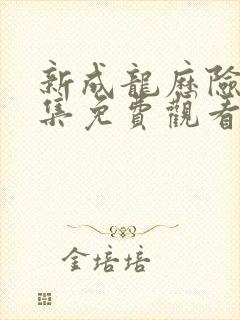 新成龍歷險
集免費觀看
金培培